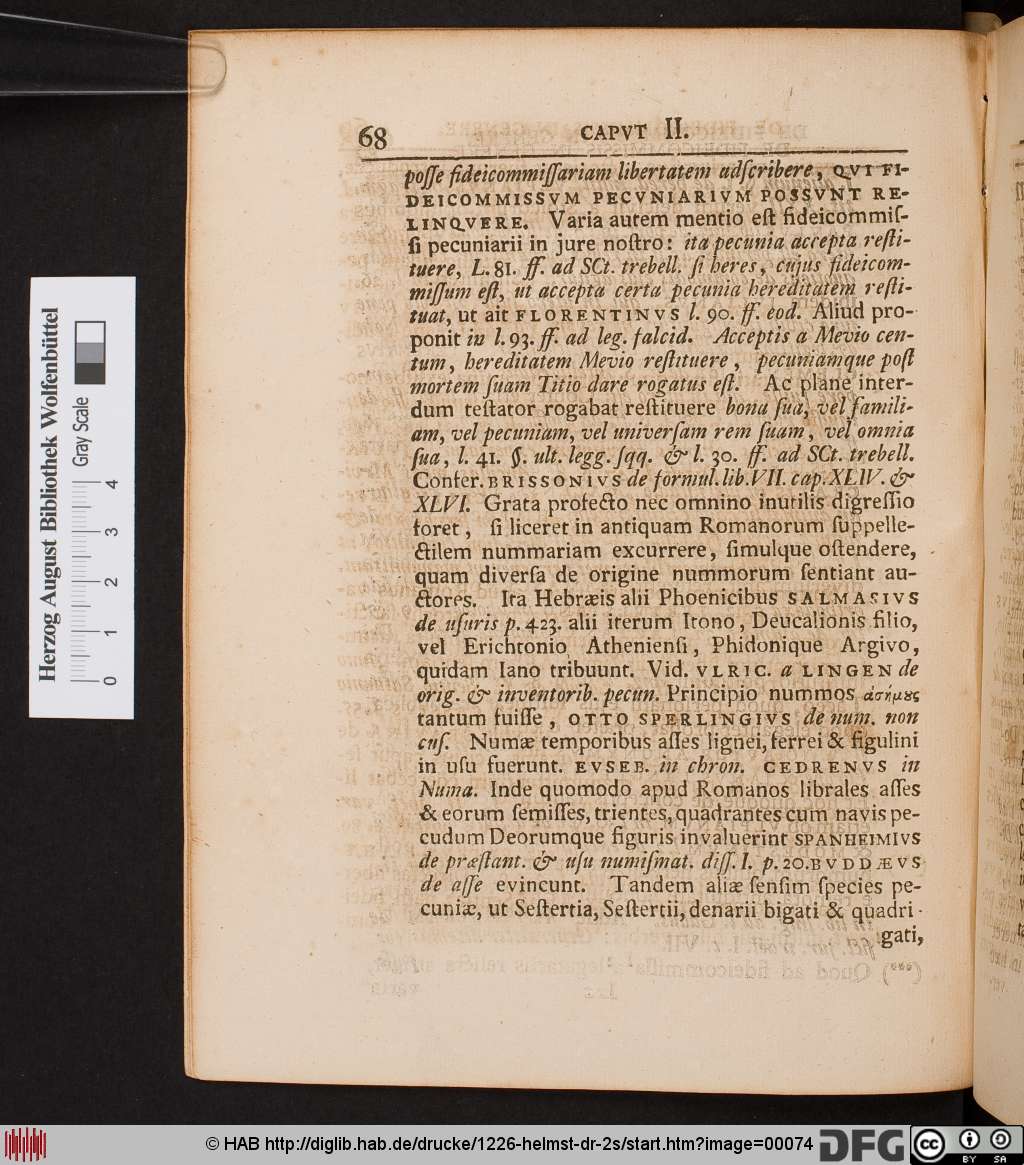 68 CAPVT II.
posse fideicommissariam libertatem adscribere, QVI FI-
DEICOMMISSVM PECVNIARIVM POSSVNT RE-
LINQVERE. Varia autem mentio est fideicommis-
si pecuniarii in jure nostro: ita pecunia accepta resti-
tuere, L. 81. ff. ad SCt. trebell. si heres, cujus fideicom-
missum est, ut accepta certa pecunia hereditatem resti-
tuat, ut ait FLORENTINVS l. 90. ff. eod. Aliud pro-
ponit in l. 93. ff. ad leg. falcid. Acceptis a Mevio cen-
tum, hereditatem Mevio restituere, pecuniamque post
mortem suam Titio dare rogatus est. Ac plane inter-
dum testator rogabat restituere bona sua, vel famili-
am, vel pecuniam, vel universam rem suam, vel omnia
sua, l. 41. §. ult. legg. sqq. & l. 30. ff. ad SCt. trebell.
Confer. BRISSONIVS de formul. lib. VII. cap. XLIV. &
XLVI. Grata profecto nec omnino inutilis digressio
foret, si liceret in antiquam Romanorum suppelle-
ctilem nummariam excurrere, simulque ostendere,
quam diversa de origine nummorum sentiant au-
ctores. Ita Hebræis alii Phoenicibus SALMASIVS
de usuris p. 423. alii iterum Itono, Deucalionis filio,
vel Erichtonio Atheniensi, Phidonique Argivo,
quidam Iano tribuunt. Vid. VLRIC. a LINGEN de
orig. & inventorib. pecun. Principio nummos ἀσήμους
tantum fuisse, OTTO SPERLINGIVS de num. non
cus. Numæ temporibus asses lignei, ferrei & figulini
in usu fuerunt. EVSEB. in chron. CEDRENVS in
Numa. Inde quomodo apud Romanos librales asses
& eorum semisses, trientes, quadrantes cum navis pe-
cudum Deorumque figuris invaluerint SPANHEIMIVS
de præstant. & usu numismat. diss. I. p. 20. BVDDÆVS
de asse evincunt. Tandem aliæ sensim species pe-
cuniæ, ut Sestertia, Sestertii, denarii bigati & quadri-
gati,
Herzog August Bibliothek Wolfenbüttel
Gray Scale
0 1 2 3 4
© HAB http://diglib.hab.de/drucke/1226-helmst-dr-2s/start.htm?image=00074
DFG
cc BY SA